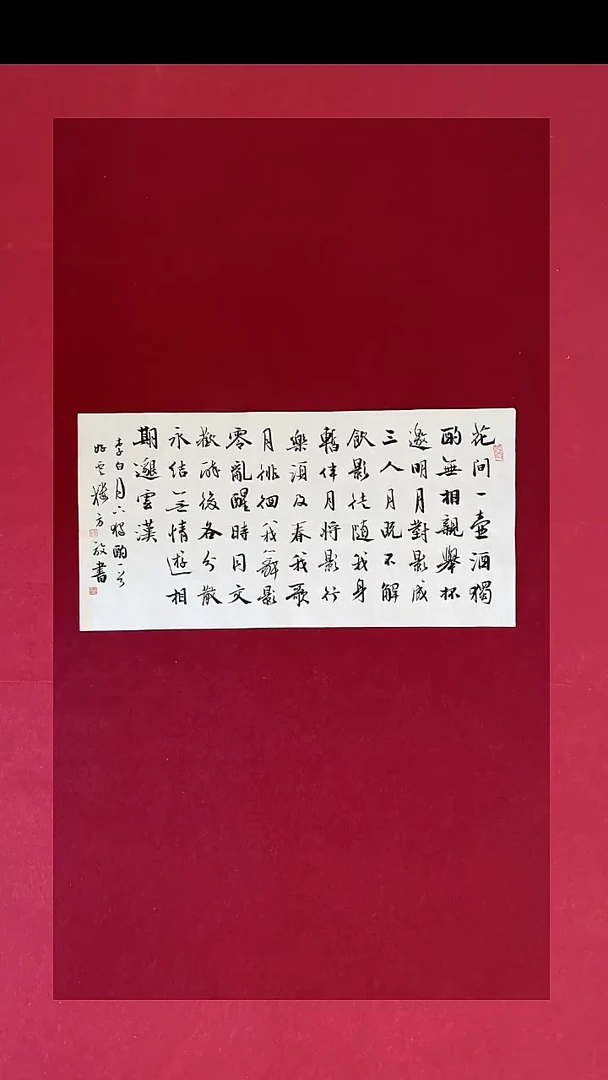 花間一壺酒獨
酌無相親舉杯
邀明月對影成
三人月既不解
飲影徒随我身
暫伴月將影行
樂須及春我歌
月徘徊我舞影
零亂醒時同交
歡醉後各分散
永結無情遊相
期邈雲漢
李白月下獨酌一首
書